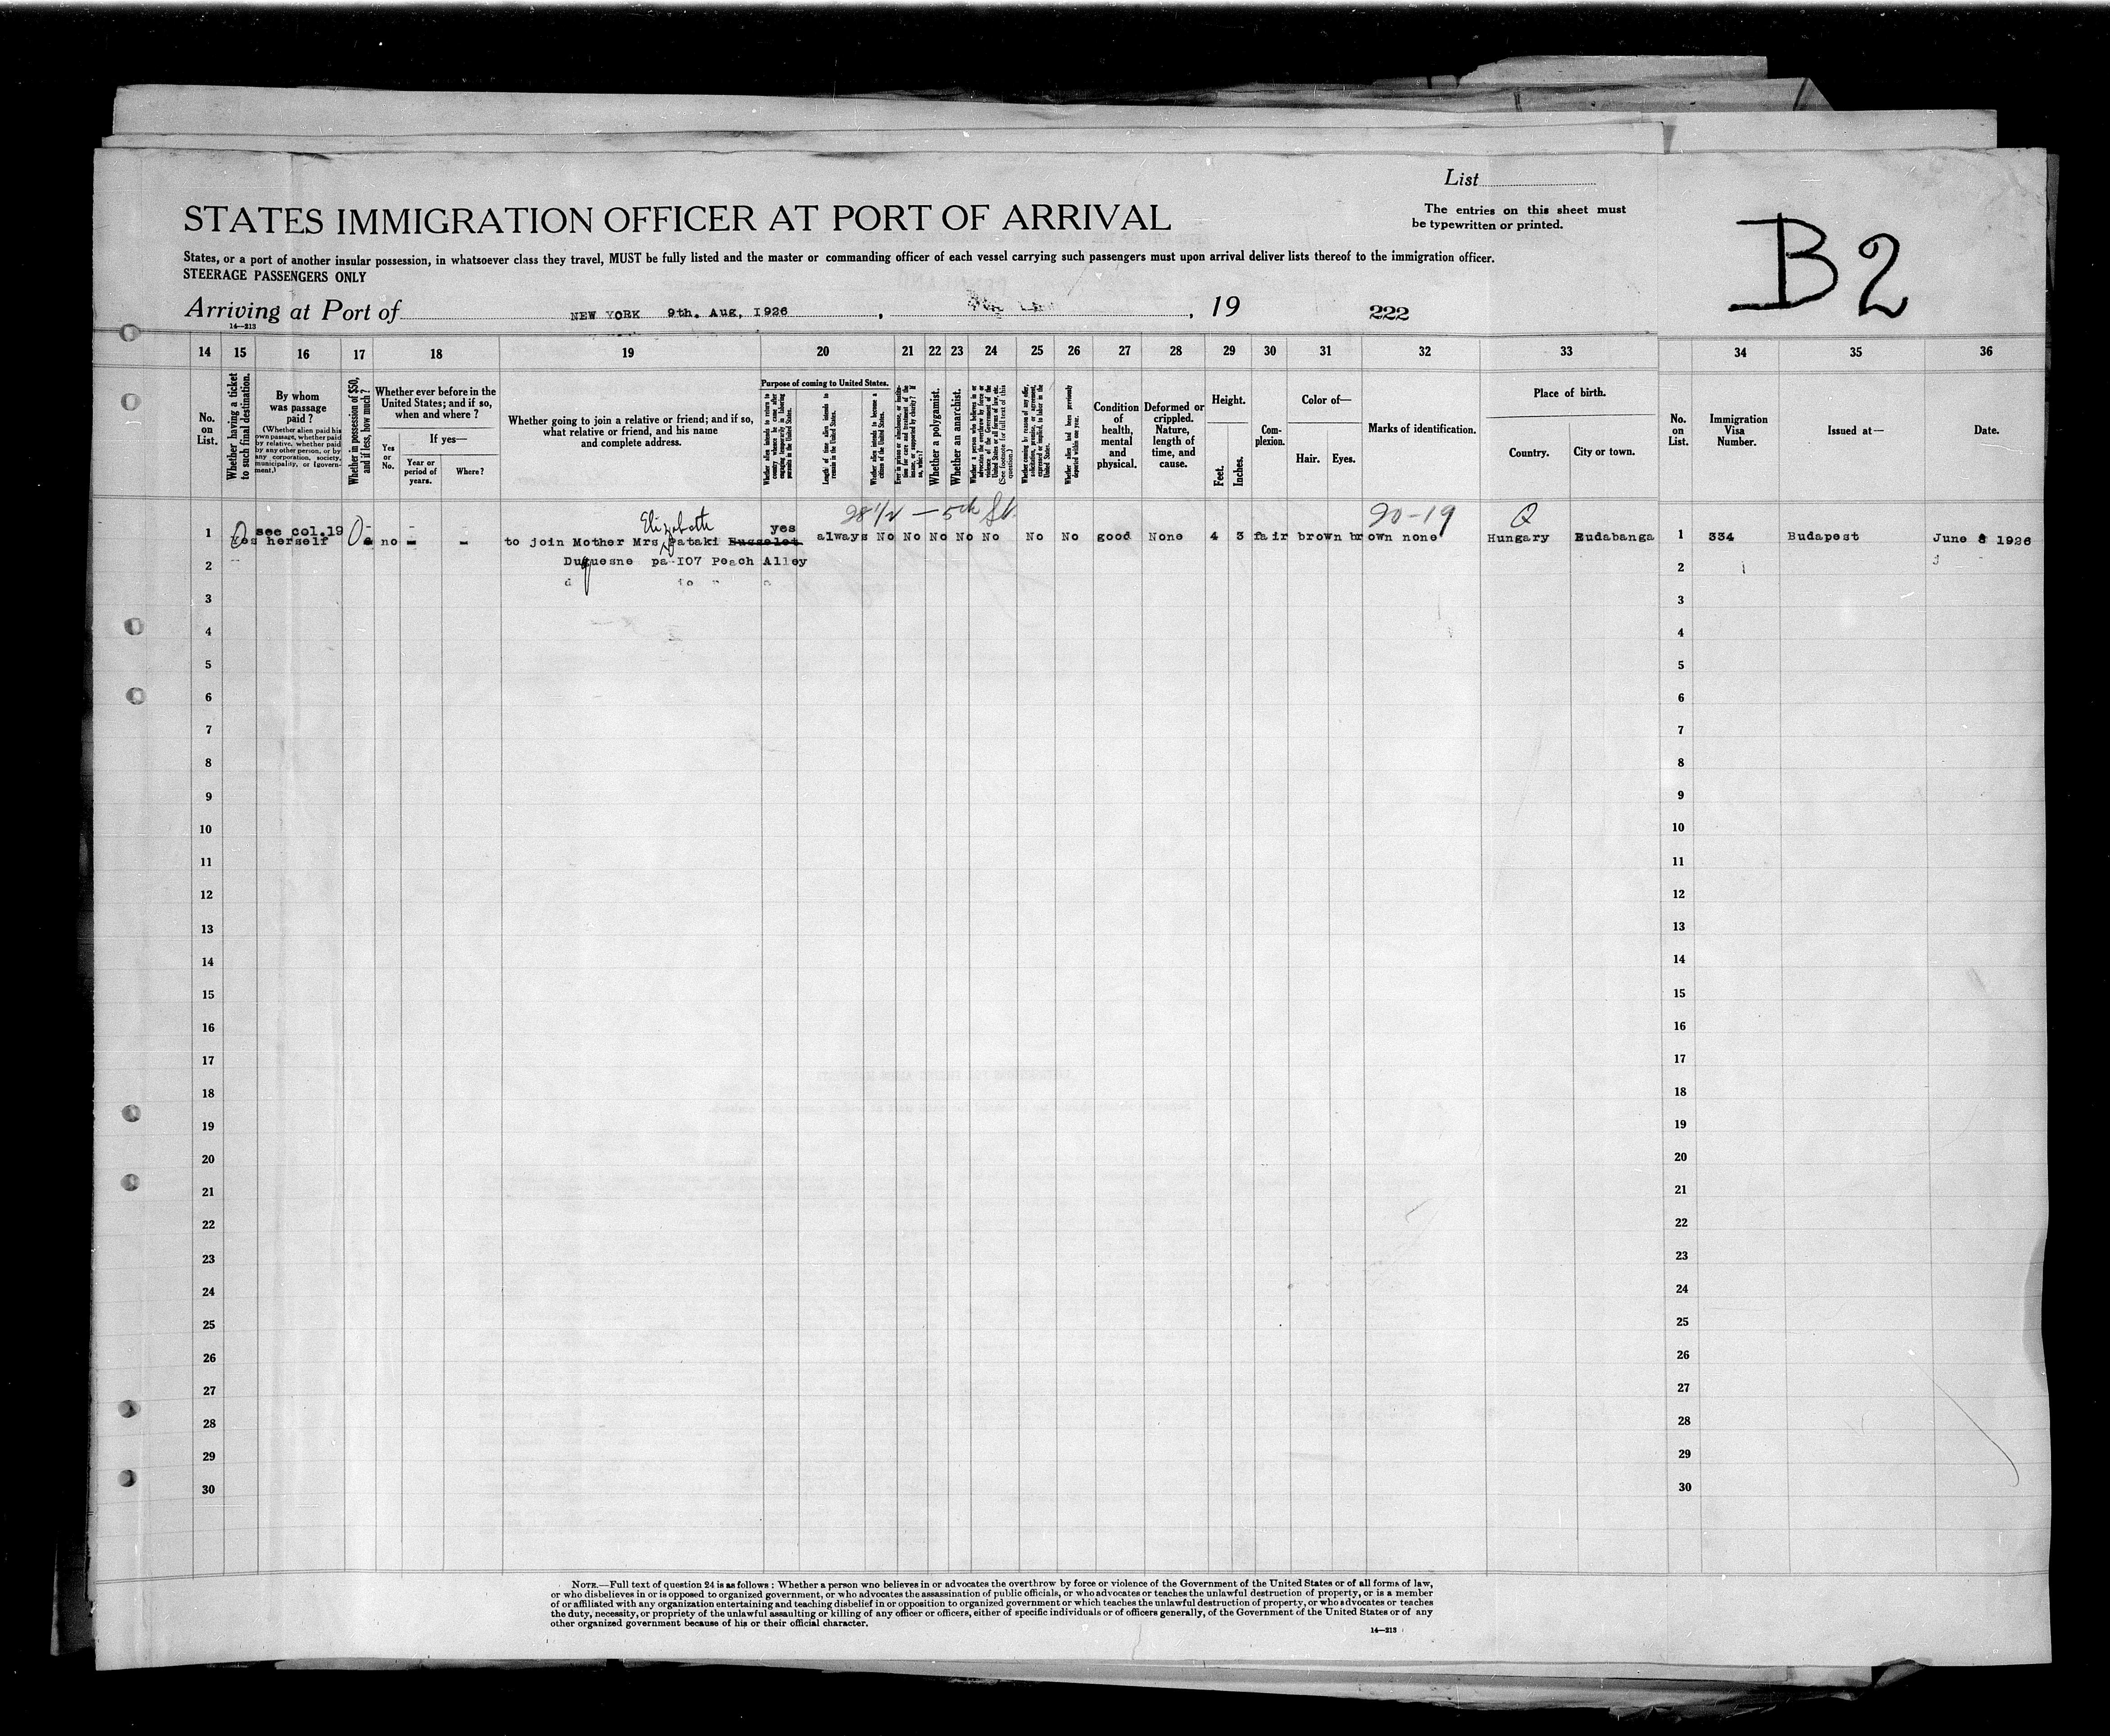 List
STATES IMMIGRATION OFFICER AT PORT OF ARRIVAL
The entries on this sheet must
be typewritten or printed.
B2
States, or a port of another insular possession, in whatsoever class they travel, MUST be fully listed and the master or commanding officer of each vessel carrying such passengers must upon arrival deliver lists thereof to the immigration officer.
STEERAGE PASSENGERS ONLY
Arriving at Port of NEW YORK 9th. Aug, 1926 , , 19 222
14—213
14 15 16 17 18 19 20 21 22 23 24 25 26 27 28 29 30 31 32 33 34 35 36
No. on List.
Whether having a ticket to such final destination.
By whom was passage paid?
(Whether alien paid his own passage, whether paid by relative, whether paid by any other person, or by any corporation, society, municipality, or government.)
Whether in possession of $50, and if less, how much?
Whether ever before in the United States; and if so, when and where?
Yes or No.
If yes—
Year or period of years.
Where?
Whether going to join a relative or friend; and if so, what relative or friend, and his name and complete address.
Purpose of coming to United States.
Whether alien intends to return to country whence he came after engaging temporarily in laboring pursuits in the United States.
Length of time alien intends to remain in the United States.
Whether alien intends to become a citizen of the United States.
Whether a polygamist.
Whether an anarchist.
(See footnote for full text of this question.)
Whether coming by reason of any offer, solicitation, promise, or agreement, expressed or implied, to labor in the United States.
Whether alien had been previously deported within one year.
Condition of health, mental and physical.
Deformed or crippled. Nature, length of time, and cause.
Height.
Feet.
Inches.
Complexion.
Color of—
Hair.
Eyes.
Marks of identification.
Place of birth.
Country.
City or town.
No. on List.
Immigration Visa Number.
Issued at—
Date.
28 1/2 — 5th St.
90-19
Elizabeth
see col.19 yes
1 Yes herself no - - to join Mother Mrs Pataki always No No No No No No No good None 4 3 fair brown brown none Hungary Rudabanga 1 334 Budapest June 8 1926
2 Duquesne pa 107 Peach Alley 2
3 3
4 4
5 5
6 6
7 7
8 8
9 9
10 10
11 11
12 12
13 13
14 14
15 15
16 16
17 17
18 18
19 19
20 20
21 21
22 22
23 23
24 24
25 25
26 26
27 27
28 28
29 29
30 30
NOTE.—Full text of question 24 is as follows: Whether a person who believes in or advocates the overthrow by force or violence of the Government of the United States or of all forms of law,
or who disbelieves in or is opposed to organized government, or who advocates the assassination of public officials, or who advocates or teaches the unlawful destruction of property, or is a member
of or affiliated with any organization entertaining and teaching disbelief in or opposition to organized government or which teaches the unlawful destruction of property, or who advocates or teaches
the duty, necessity, or propriety of the unlawful assaulting or killing of any officer or officers, either of specific individuals or of officers generally, of the Government of the United States or of any
other organized government because of his or their official character.
14—213